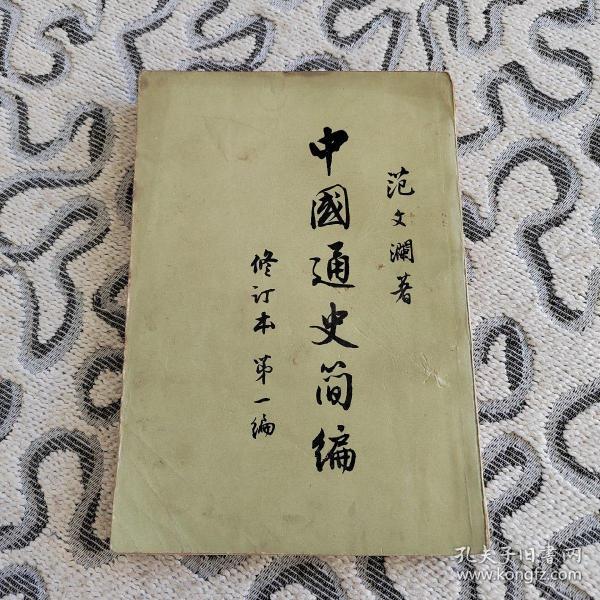 范文澜著
中國通史简编
修订本 第一编
孔夫子旧书网
www.kongfz.com